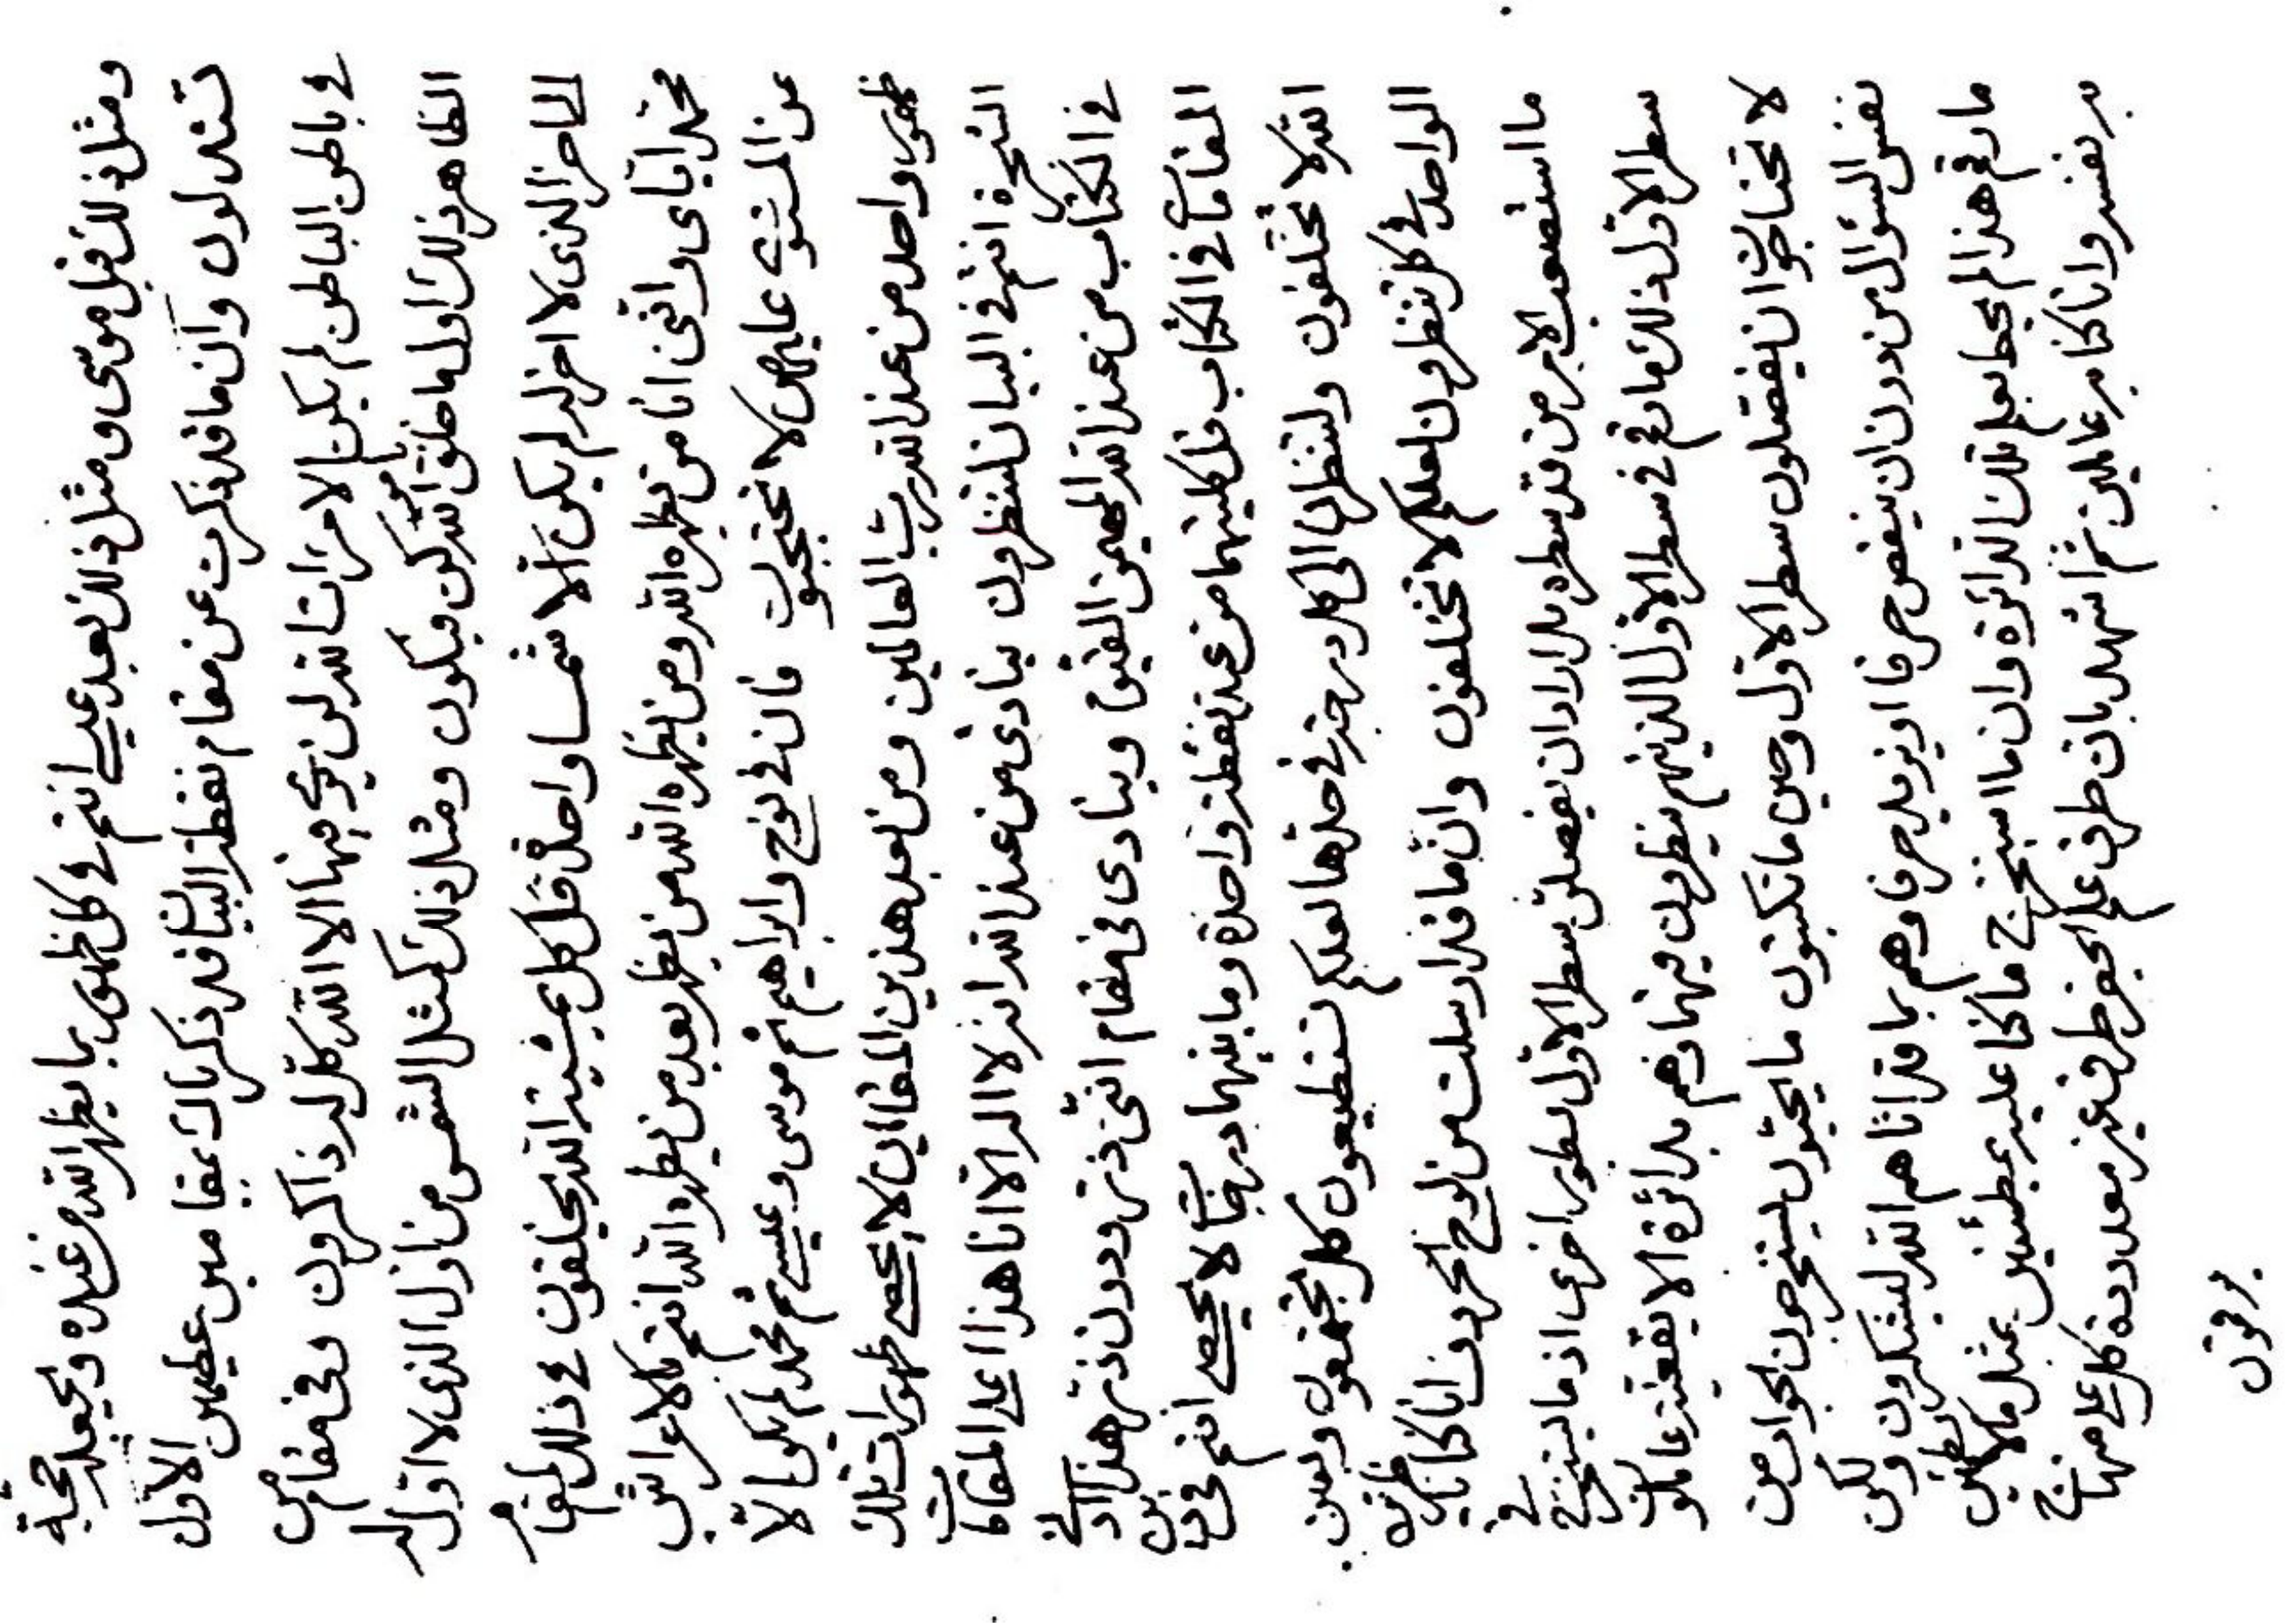 ومثل ذلك قبل موسى ومثل ذلك بعد عيسى انتم في كل ظهور بما يظهر الله من عنده ويجعله حجة
تستدلون وان ما قد ذكرت عن مقام نقطة البيان قد ذكرناك بمقامين عظيمين الاول
في باطن الباطن لم يكن الا مرات الله لن يرى فيها الا الله كل له ذاكرون وفى مقام
الظاهر ذلك اول ما خلق بامر الله كن فيكون ومثل ذلك كمثل الشمس من اول الذى لا اول له
الى اخر الذى لا اخر له لم يكن الا شمسا واحدة قل كل بمشية الله يخلقون في ذلك المقام
محمد اياى واننى انا من يظهره الله ومن يظهره الله من يظهر بعد من يظهره الله انتم بالاعراش
عن المستوى عليهن لا تحتجبون فان في نوح وابراهيم ثم موسى وعيسى ثم محمد لم يكن الا
ظهور واحد من عند الله رب العالمين ومن بعد هذين المقامين لا يحصى ظهورات تلك
الشجرة انتم في البيان لتنظرون ينادى من عند الله انه لا اله الا انا هذا اعلى المقامات
في الكتاب من عند الله المهيمن القيوم وينادى فى مقام اننى ذر ودون ذر هذا ادنى
المقامات في الكتاب قل كليهما من عند نقطة واحدة وما بينهما درجات لا يحصى انتم في دين
الله لا تختلفون ولتنظرن الى كل درجة في حدها لعلكم تستطيعون كل تجمعون وبين
الواحد في كل تنظرون لعلكم لا تختلفون وان ما قد ارسلت من لوح الحروف انا كنا ناظرين
ما استصعب الامر من قد سطره بل اراد ان يفصلن سطر الاول بسطور اخرى اذ ما يستخرج في
سطر الاول ذلك ما رقم في سطر الاول الذينهم ينظرون فيها وهم بدائرة الايقغية عالمون
لا تحتاجون ان يفصلون سطر الاول وحين ما تكتبون ما يحبون ليستخرجون الجواب من
نفس السؤال من دون ان ينقص حرفا او يزيد حرفا وهم بما قد اتاهم الله ليشكرون ولكن
ما رقم هذا لم يحط بعلم تلك الدائرة وان ما استخرج ما كنا عليه بمطئنين بمثل ما
به نفسه وانا كنا به عالمين ثم اشهد بان طرق علم الحروف طرق غير معدودة كل على منهاج
يرقون